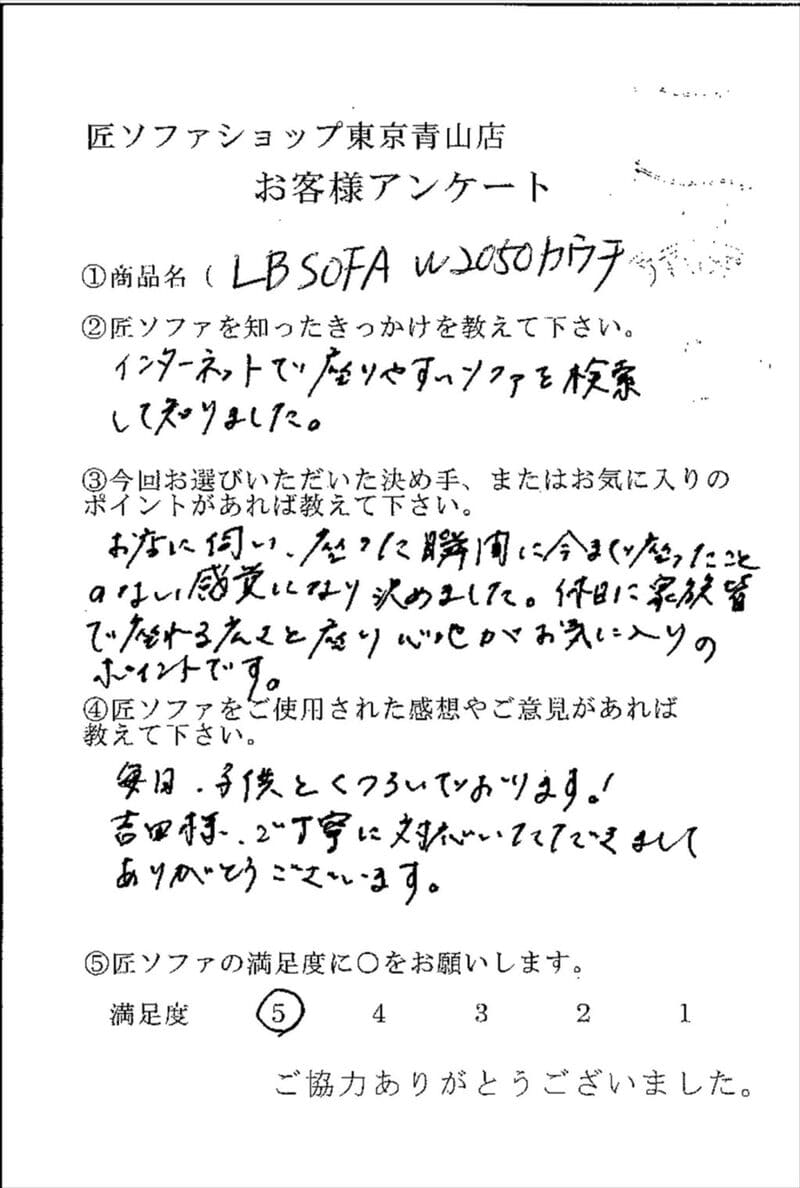 匠ソファショップ東京青山店
お客様アンケート
①商品名（ LBSOFA W2050カウチ
②匠ソファを知ったきっかけを教えて下さい。
インターネットで座りやすいソファを検索
して知りました。
③今回お選びいただいた決め手、またはお気に入りの
ポイントがあれば教えて下さい。
お店に伺い、座った瞬間に今まで座ったこと
のない感覚になり決めました。休日に家族皆
で座れる広さと座り心地がお気に入りの
ポイントです。
④匠ソファをご使用された感想やご意見があれば
教えて下さい。
毎日、子供とくつろいでおります！
吉田様、ご丁寧に対応いただきまして
ありがとうございます。
⑤匠ソファの満足度に〇をお願いします。
満足度 5 4 3 2 1
ご協力ありがとうございました。